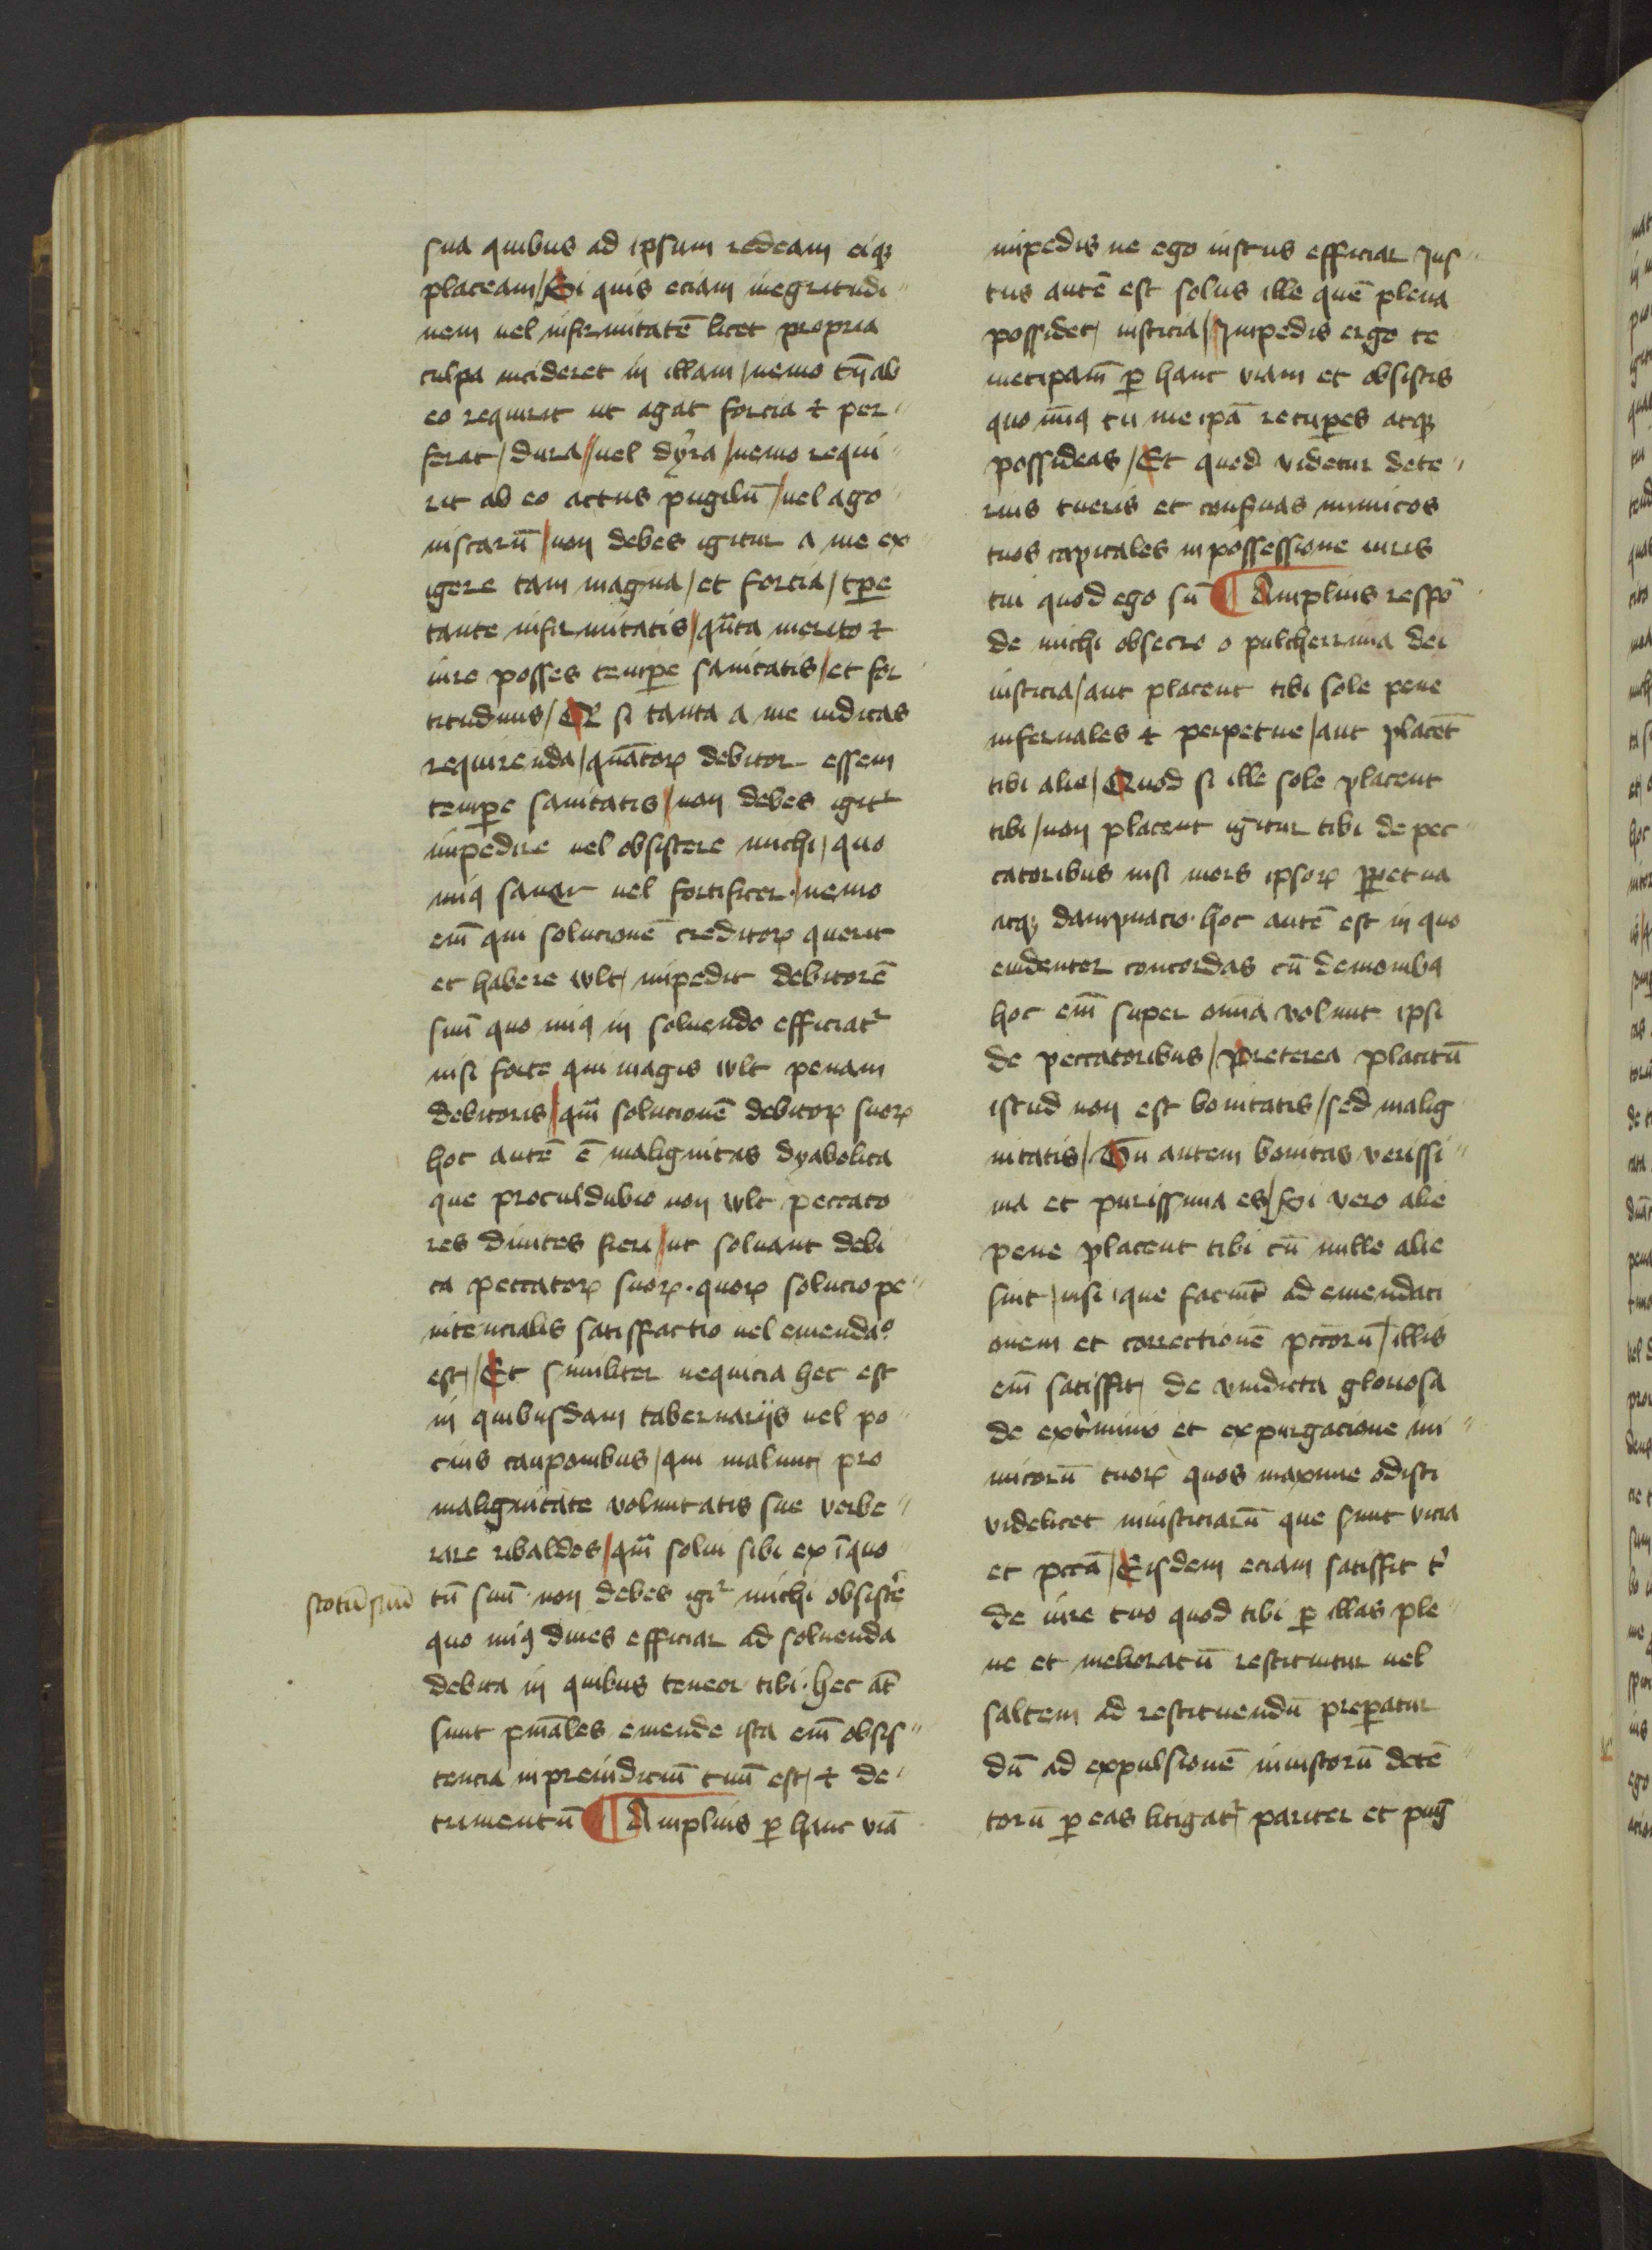 sua quibus ad ipsum redeam eiqꝫ
placeam / Si quis eciam inegritudi〃
nem uel infirmitatē licet propria
culpa incideret in illam / nemo tn̄ ab
eo requirit ut agat forcia ⁊ per〃
ferat / dura / uel dyra / nemo requi〃
rit ab eo actus pugilū / uel ago〃
niscarū / non debes igitur a me ex〃
igere tam magna / et forcia / tp̱e
tante infirmitatis / qn̄ta merito ⁊
iure posses temp̱e sanitatis / et for〃
titudinis / Qꝛ si tanta a me iudicas
requirenda / quātoꝝ debitor essem
temp̱e sanitatis / non debes igitᷣ
impedire uel obsistere michi / quo
minꝰ saner uel fortificer · nemo
em̄ qui solucionē creditoꝝ querit
et habere wlt / impedit debitorē
suū quo minꝰ in soluendo efficiatᷣ
nisi forte qui magis wlt penam
debitoris / qm̄ solucionē debitoꝝ suoꝝ
hoc autē ē malignitas dyabolica
que proculdubio non wlt peccato〃
res diuites fieri / ut soluant debi〃
ta peccatoꝝ suoꝝ · quoꝝ solucio pe〃
nitencialis satisffactio uel emendaᵒ
est / Et similiter nequicia hec est
in quibusdam tabernarijs uel po〃
cius cauponibus / qui malunt pro
malignitate voluntatis sue verbe〃
rare ribaldos / qm̄ solui sibi ex īquo〃
scotū suū
tū suū · non debes igiᷣ michi obsistē
quo minꝰ diues efficiar ad soluenda
debita in quibus teneor tibi · hec āt
sunt pn̄ales emende ista em̄ obsis〃
tencia inpreiudiciū tuū est / ⁊ de〃
trimentū ¶ Amplius ꝑ hanc viā
impedis ne ego iustus efficiar Jus〃
tus autē est solus ille quē plena
possidet / iusticia / Jmpedis ergo te
metipam̄ ꝑ hanc viam et obsistis
quo minꝰ tu me ipā recuꝑes atqꝫ
possideas / Et quod videtur dete〃
rius tueris et conẜuas inimicos
tuos capitales in possessione iuris
tui quod ego sū ¶ Amplius respō〃
de michi obsecro o pulcherrima dei
iusticia / aut placent tibi sole pene
infernales ⁊ perpetue / aut placēt
tibi alie / Quod si ille sole placent
tibi / non placent igitur tibi de pec〃
catoribus nisi mors ipsoꝝ ꝑpetua
atqꝫ dampnacio · hoc autē est in quo
euidenter concordas cū demonibꝰ
hoc em̄ super om̄ia volunt ipsi
de peccatoribus / preterea placitū
istud non est bonitatis / sed malig〃
nitatis / Tu autem bonitas verissi〃
ma et purissima es / Si vero alie
pene placent tibi cū nulle alie
sint / nisi que faciūt ad emendaci
onem et correctionē pctorū / illis
em̄ satisffit / de vindicta gloriosa
de extᷣminio et expurgacione ini〃
micorū tuoꝝ quos maxime odisti
videlicet iniusticiarū que sunt vicia
et pctā / Eisdem eciam satisffit tᷣ
de iure tuo quod tibi ꝑ illas ple〃
ne et melioratū restituitur uel
saltem ad restituendū preꝑatur
dū ad expulsionē iniustorū detē〃
torū ꝑ eas litigatᷣ pariter et pug̅